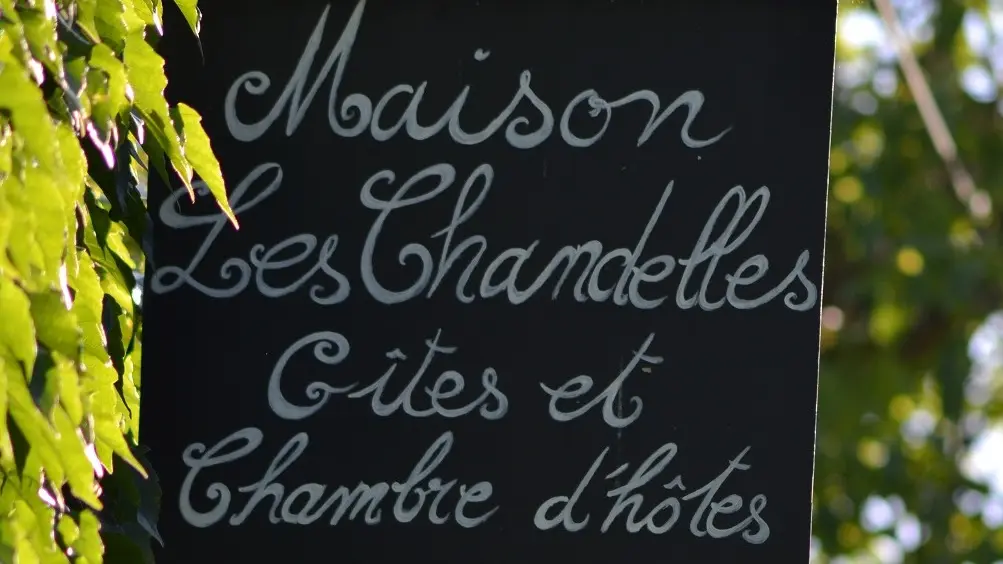 Maison
Les Chandelles
Gîtes et
Chambre d'hôtes